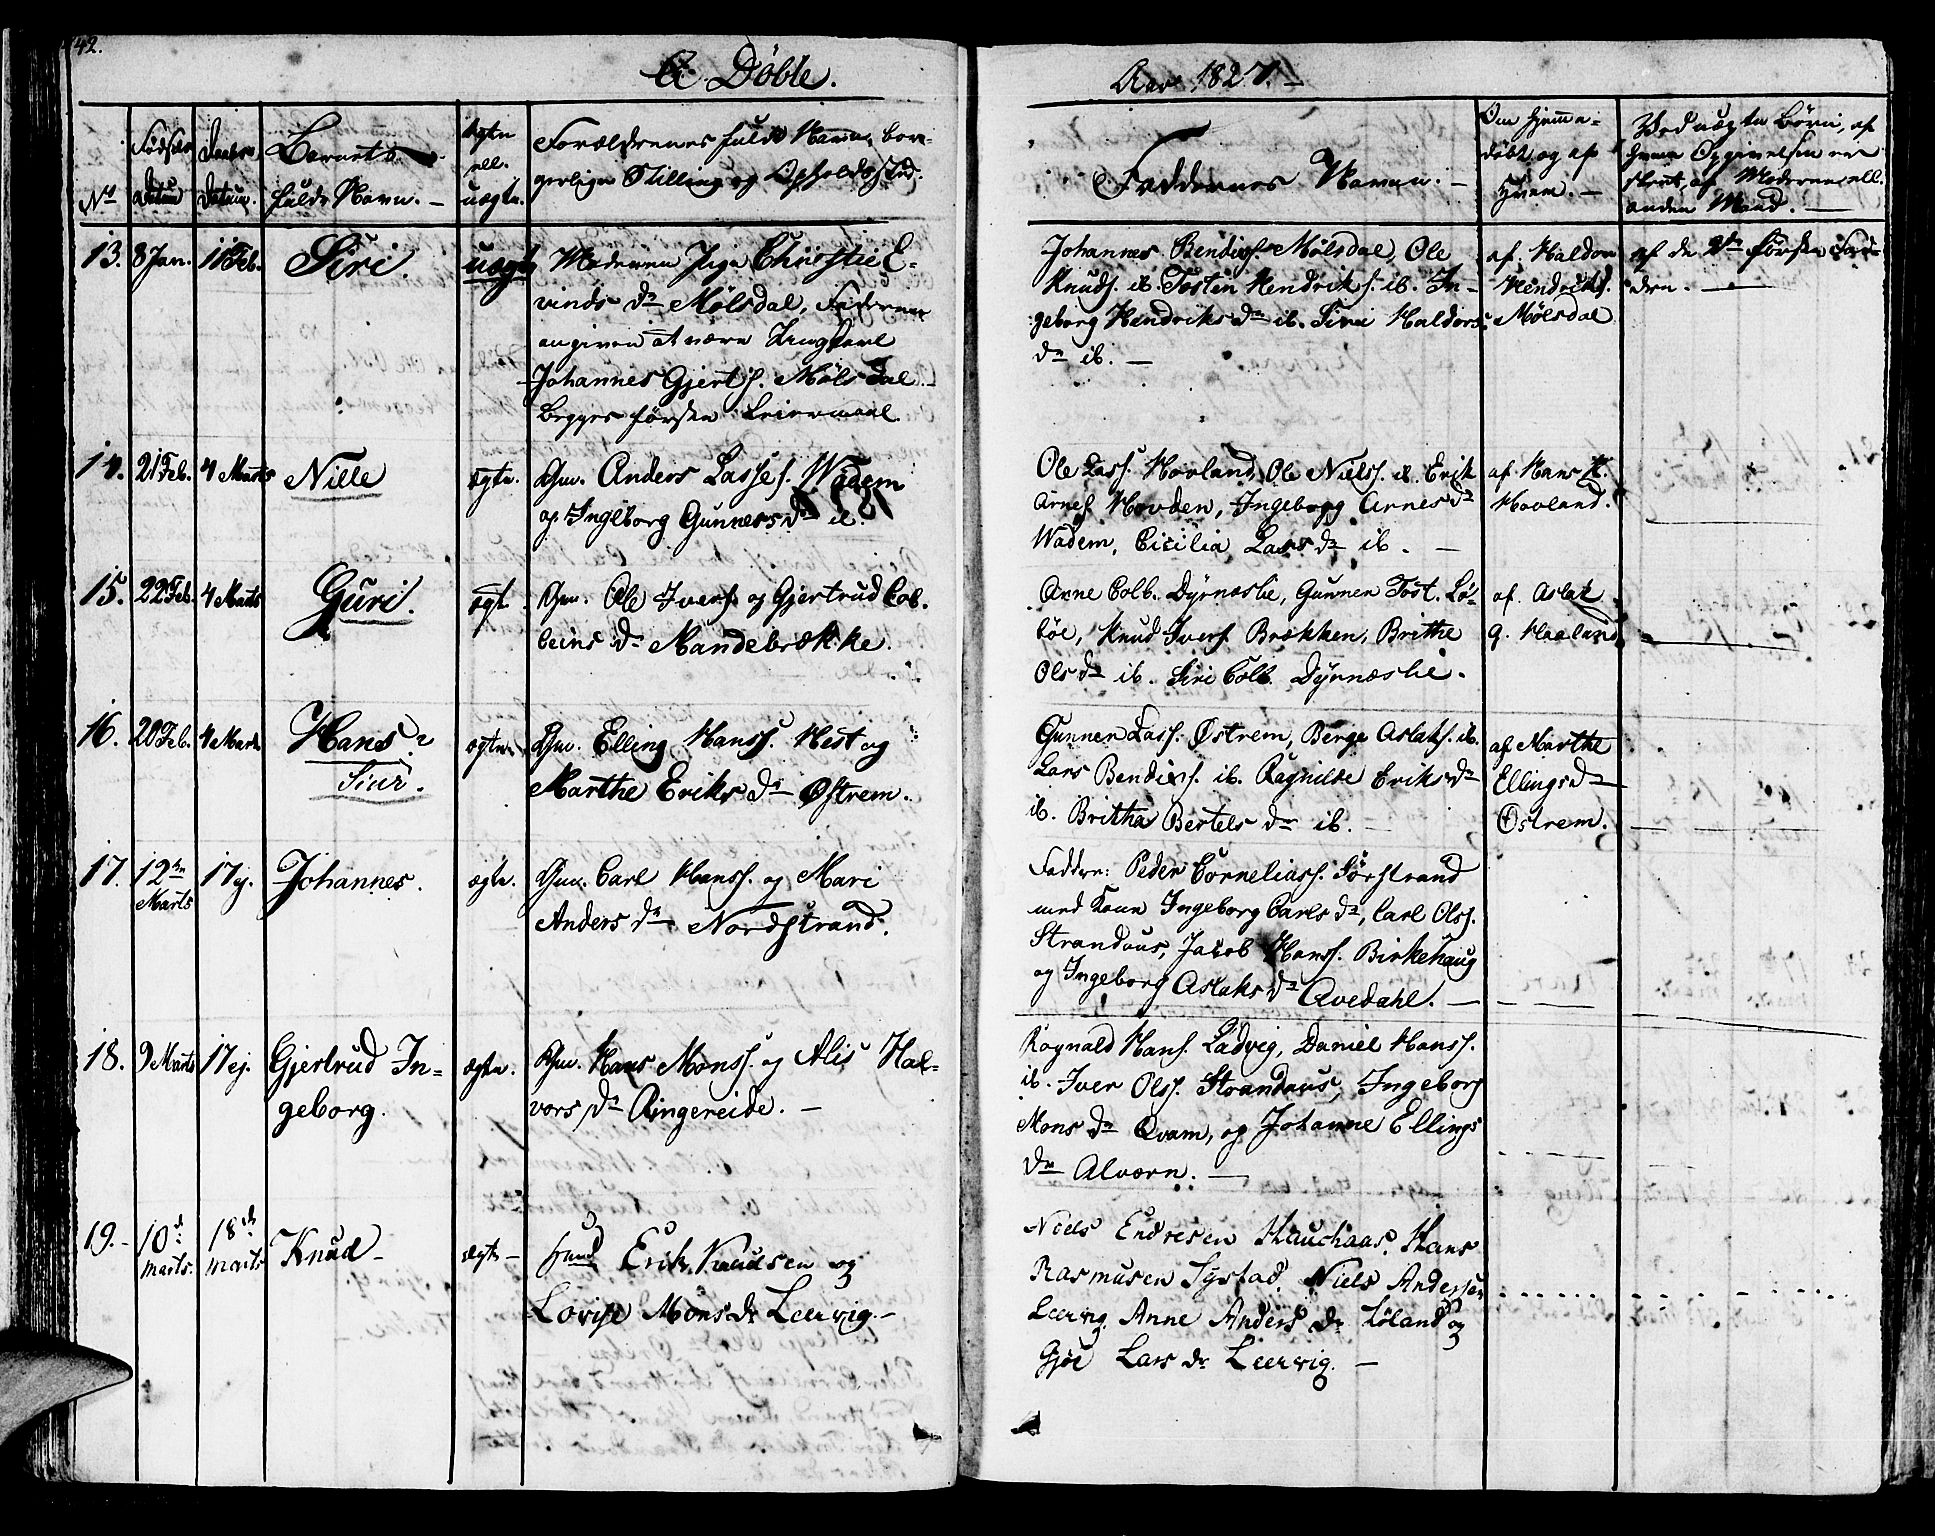 42.
Döbte.
Aar 1827.
No
Fødsels Datum
Daabens Datum.
Barnets fulde Navn.
ægte ell. uægte.
Forældrenes fulde Navne, borgerlige Stilling og Opholdssted.
Faddernes Navne.
Om hjemmedöbt og af hvem.
Ved uægte Börn, af hvem Opgivelsen er skeet, af Moderen ell. anden Mand.
13. 8 Jan. 11 Feb. Siri. uægt Moderen Pige Christie E-
vinds Dr Mölsdal, Faderen
angiven at være Ungkarl
Johannes Gjerts. Mölsdal
begges første Leiermaal.
Johannes Bendixs. Mölsdal, Ole
Knuds. ib. Tosten Hendriks. ib. In-
geborg Hendriks Dr ib. Siri Haldors
Dr ib.
af Haldor
Hendriks.
Mölsdal
af de første Fad-
dere.
14. 21 Feb. 4 Marts Nille ægte. Gm. Anders Lasses. Wadem
og Ingeborg Gunners Dr ib.
Ole Lass. Hovland, Ole Nielss. ib. Erik
Arnes. Hovden, Ingeborg Arnes Dr
Wadem, Cicilia Lars Dr ib.
af Hans K.
Hovland.
15. 22 Feb. 4 Marts Guri. ægt. Gm. Ole Ivers. og Gjertrud Col-
beins Dr Mandebrække.
Arne Colb. Dyrnæslie, Gunner Tost. Lö-
töe, Knud Ivers. Brækken, Brithe
Ols Dr ib. Siri Colb. Dyrnæslie.
af Aslak
G. Haaland
16. 20 Feb. 4 Marts Hans
Siur.
ægte. Gm. Elling Hanss. Hest og
Marthe Eriks Dr Østrem.
Gunner Lass. Østrem, Berge Aslaks. ib.
Lars Bendixs. ib. Ragnilde Eriks Dr
ib. Britha Bertels Dr ib.
af Marthe
Ellings Dr
Østrem.
17. 12te Marts 17 ej. Johannes. ægte. Gm. Carl Hanss. og Mari
Anders Dr Nordstrand.
Faddere: Peder Corneliass. Sörstrand
med Kone Ingeborg Carls Dr, Carl Olss.
Strandous, Jacob Hanss. Birkehaug
og Ingeborg Aslaks Dr Avedahl.
18. 9 Marts 17 ej. Gjertrud In-
geborg.
ægte. Gm. Hans Monss. og Alis Hal-
vors Dr Ringereide.
Ragnald Hans. Ladvig, Daniel Hanss.
ib. Iver Olss. Strandous, Ingeborg
Mons Dr Qvam, og Johanne Ellings
Dr Alværn.
19. 10d Marts. 18de Marts Knud ægte Gmd Erik Knudsen og
Lovise Mons Dr Leervig.
Niels Endresen
Rasmusen Systad. Niels Andersen
Leervig. Anne Anders Dr Löland og
Gjöe Lars Dr Leervig.